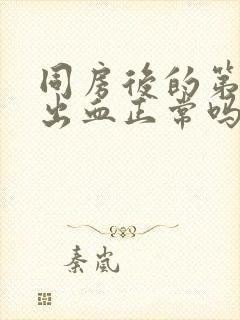 同房後的第
出血正常吗
秦嵐